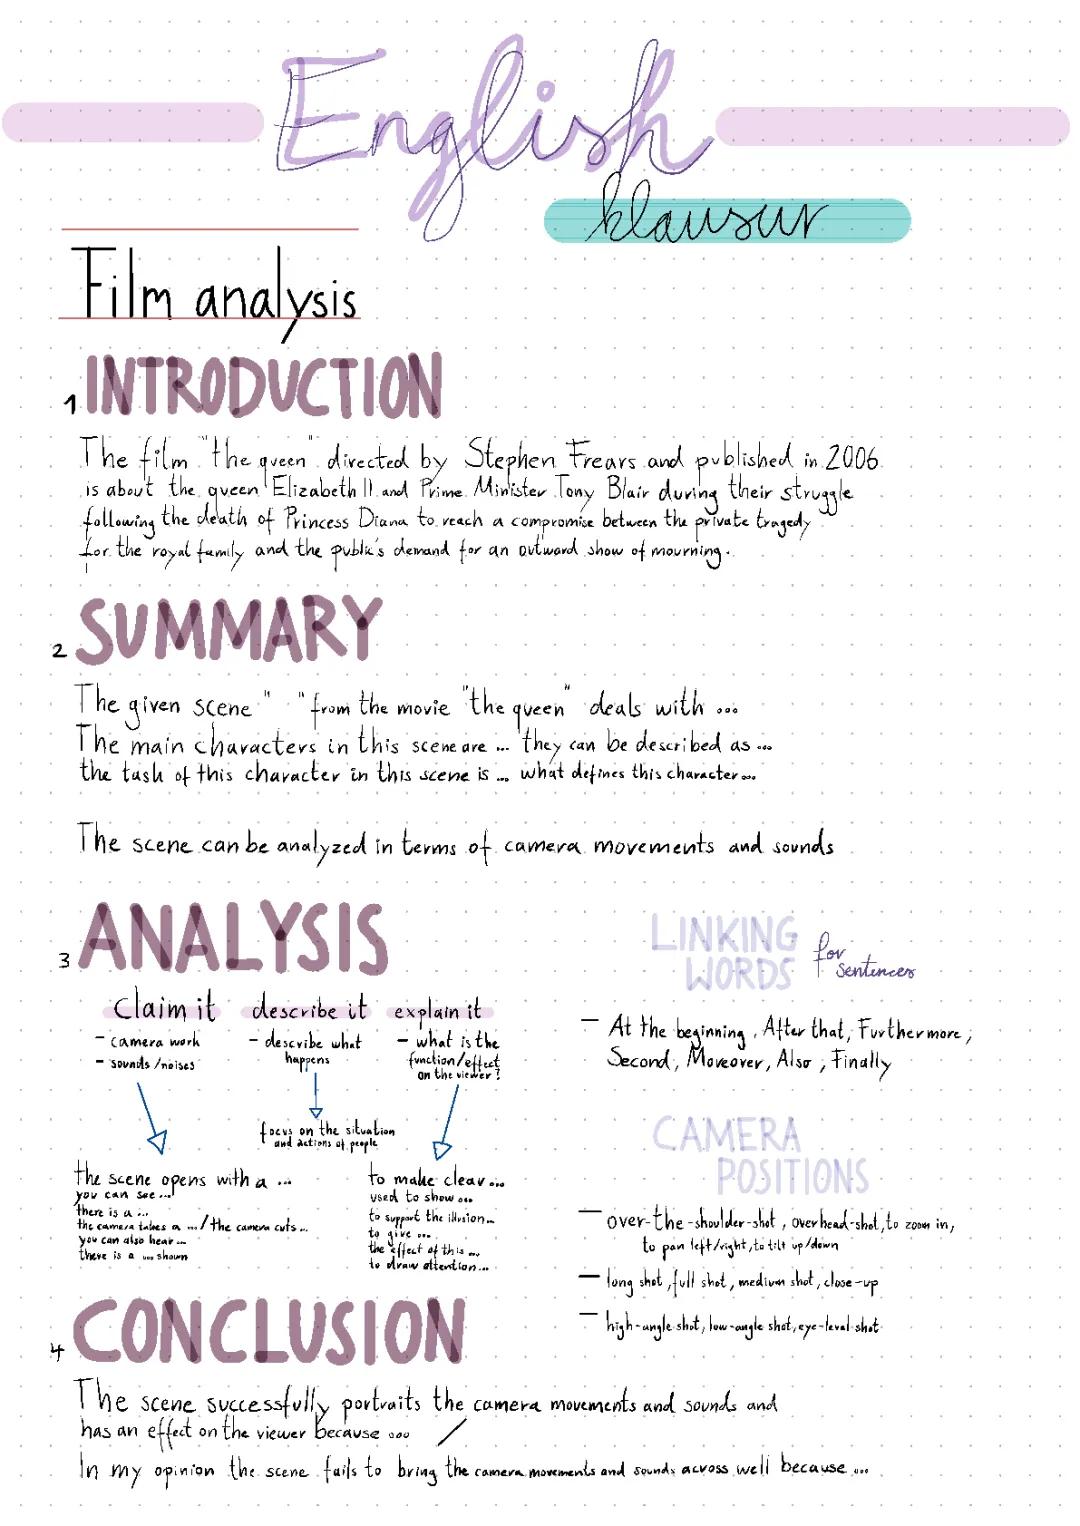 English
klausur
Film analysis
1 INTRODUCTION
The film "the queen" directed by Stephen Frears and published in 2006
is about the queen Elizabeth II and Prime Minister Tony Blair during their struggle
following the death of Princess Diana to reach a compromise between the private tragedy
for the royal family and the public's demand for an outward show of mourning.
2 SUMMARY
The given scene " " from the movie "the queen" deals with ...
The main characters in this scene are ... they can be described as ...
the task of this character in this scene is ... what defines this character...
The scene can be analyzed in terms of camera movements and sounds
3 ANALYSIS
Claim it
- camera work
- sounds/noises
the scene opens with a ...
you can see ...
there is a ...
the camera takes a .../the camera cuts...
you can also hear ...
there is a ... shown
describe it
- describe what
happens
focus on the situation
and actions of people
explain it
- what is the
function/effect
on the viewer?
to make clear...
used to show ...
to support the illusion...
to give ...
the effect of this ...
to draw attention...
LINKING
WORDS for
sentences
- At the beginning, After that, Furthermore,
Second, Moreover, Also, Finally
CAMERA
POSITIONS
- over-the-shoulder-shot, overhead-shot, to zoom in,
to pan left/right, to tilt up/down
- long shot, full shot, medium shot, close-up
- high-angle shot, low-angle shot, eye-level shot
4 CONCLUSION
The scene successfully portraits the camera movements and sounds and
has an effect on the viewer because ... /
In my opinion the scene fails to bring the camera movements and sounds across well because ...